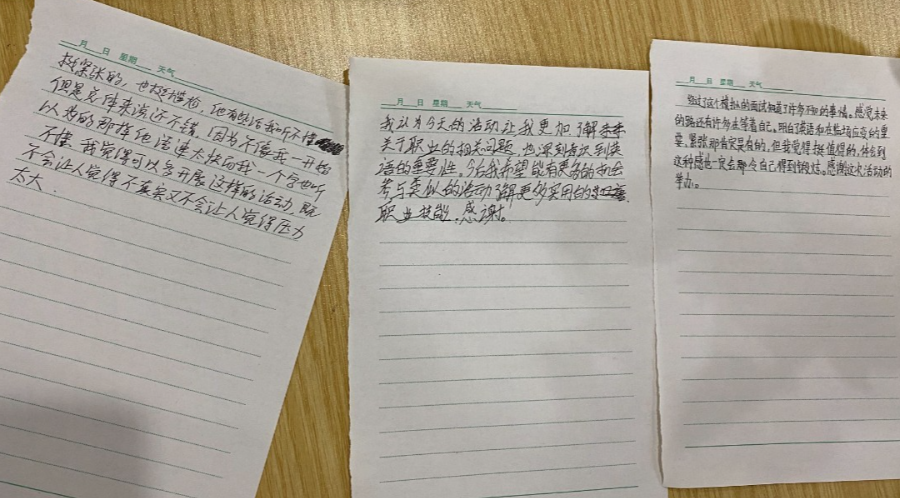 月 日 星期 天气
挺紧张的，也挺尴尬，他有些话我听不懂
但是总体来说还不错，因为不像我一开始
以为的那样他法速太快而我一个字也听
不懂。我觉得可以多开展这样的活动，既
不会让人觉得不真实又不会让人觉得压力
太大.
月 日 星期 天气
我认为今天的活动让我更加了解
关于职业的相关问题，也深刻意识到英
语的重要性。今后我希望能有更多的机会
参与类似的活动了解更多实用的
职业技能，感谢。
月 日 星期 天气
经过这个模拟的面试知道了许多不知的事情。感觉未来
的路还有许多在等着自己。明白英语和在临场应变的重
要。紧张那肯定是有的，但我觉得挺值得的，体会到
这种感觉一定会那令自己得到锻炼。感谢这次活动的
举办。